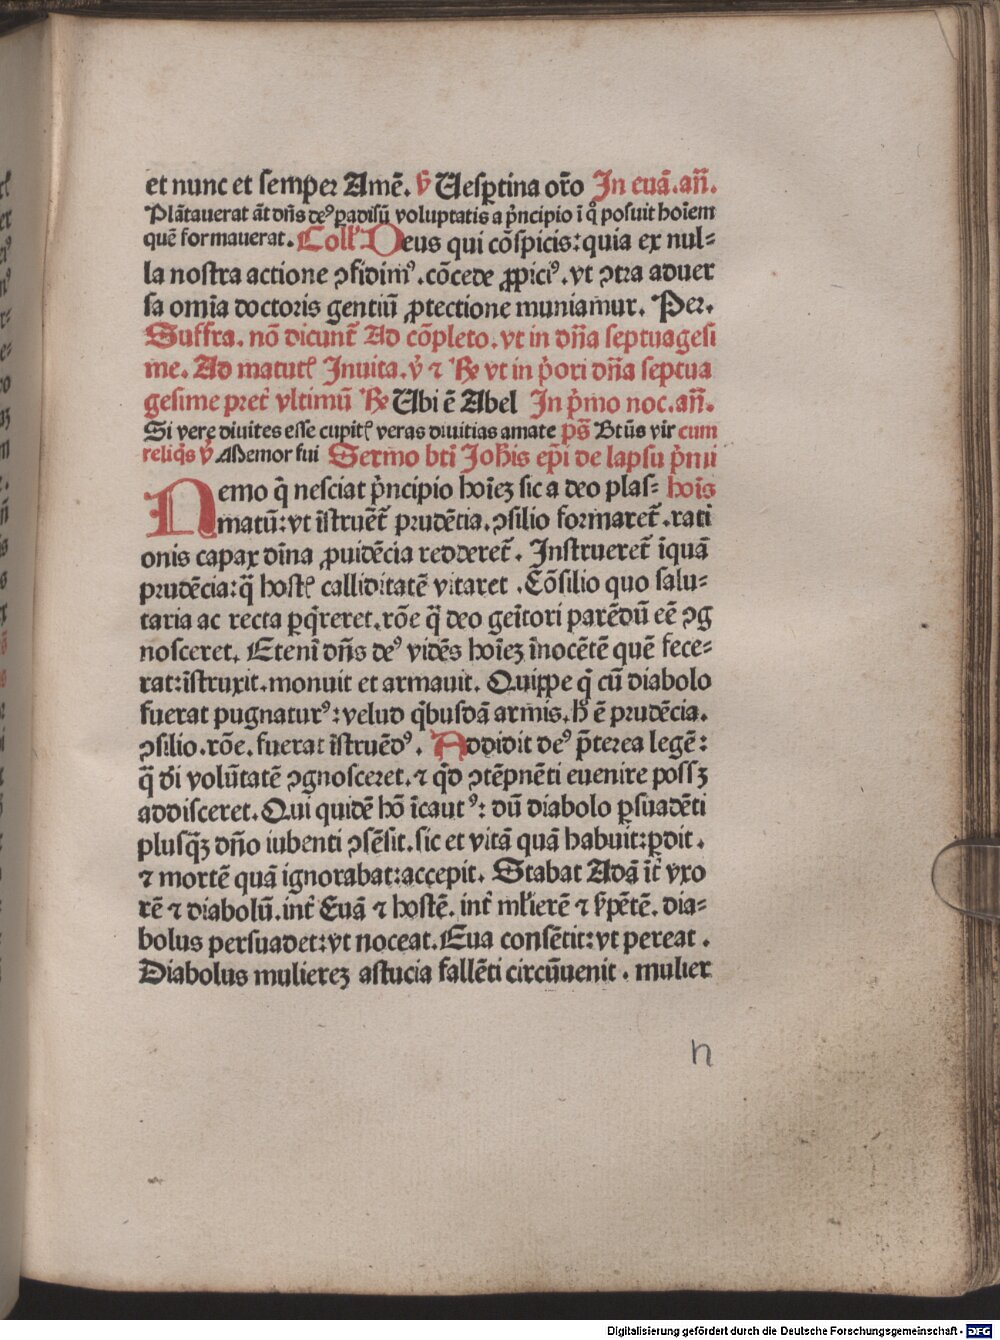 et nunc et semper Amē. v̄ Uesꝑtina or̄o In euā. an̄.
Plātauerat āt dn̄s deꝰ ꝑadisū voluptatis a pͥncipio ī q̊ posuit hoīem
quē formauerat. Coll̄ Deus qui cōspicis: quia ex nul⸗
la nostra actione ↄfidimꝰ. cōcede ꝓpiciꝰ. vt ↄtra aduer
sa om̄ia doctoris gentiū ꝓtectione muniamur. Per.
Suffra. nō dicunt̄ Ad cōpleto. vt in dn̄a septuagesi
me. Ad matutꝭ Inuita. v̊ ⁊ ℞ vt in pͥori dn̄a septua
gesime pret̄ vltimū ℞ Ubi ē Abel In pͥmo noc. an̄.
Si vere diuites esse cupitꝭ veras diuitias amate pꝰs̄ Bt̄us vir cum
reliqͥs v̊ Memor fui Sermo bt̄i Joh̄is ep̄i de lapsu pͥmi
Nemo q̄ nesciat pͥncipio hoīeꝫ sic a deo plas⸗ hoīs
matū: vt īstruēt̄ prudētia. ↄsilio formaret̄. rati
onis capax dīna ꝓuidēcia redderet̄. Instrueret̄ īquā
prudēcia: q̄ hostꝭ calliditatē vitaret. Cōsilio quo salu⸗
taria ac recta ꝑqͥreret. rōe q̄ deo geītori parēdū eē ↄg
nosceret. Etenī dn̄s deꝰ vidēs hoīeꝫ īnocētē quē fece⸗
rat: īstruxit. monuit et armauit. Quippe q̄ cū diabolo
fuerat pugnaturꝰ: velud qͥbusdā armis. h̄ ē prudēcia.
ↄsilio. rōe. fuerat īstruēdꝰ. Addidit deꝰ p̄terea legē:
q̄ dī volūtatē ↄgnosceret. ⁊ qd̄ ↄtēpnēti euenire possꝫ
addisceret. Qui quidē hō īcautꝰ: dū diabolo ꝑsuadēti
plusq̄ꝫ dn̄o iubenti ↄsēsit. sic et vitā quā habuit: ꝑdit.
⁊ mortē quā ignorabat: accepit. Stabat Adā īt̄ vxo
rē ⁊ diabolū. int̄ Euā ⁊ hostē. int̄ ml̄ierē ⁊ ẜpētē. dia⸗
bolus persuadet: vt noceat. Eua consētit: vt pereat.
Diabolus muliereꝫ astucia fallēti circūuenit. mulier
n
Digitalisierung gefördert durch die Deutsche Forschungsgemeinschaft - DFG